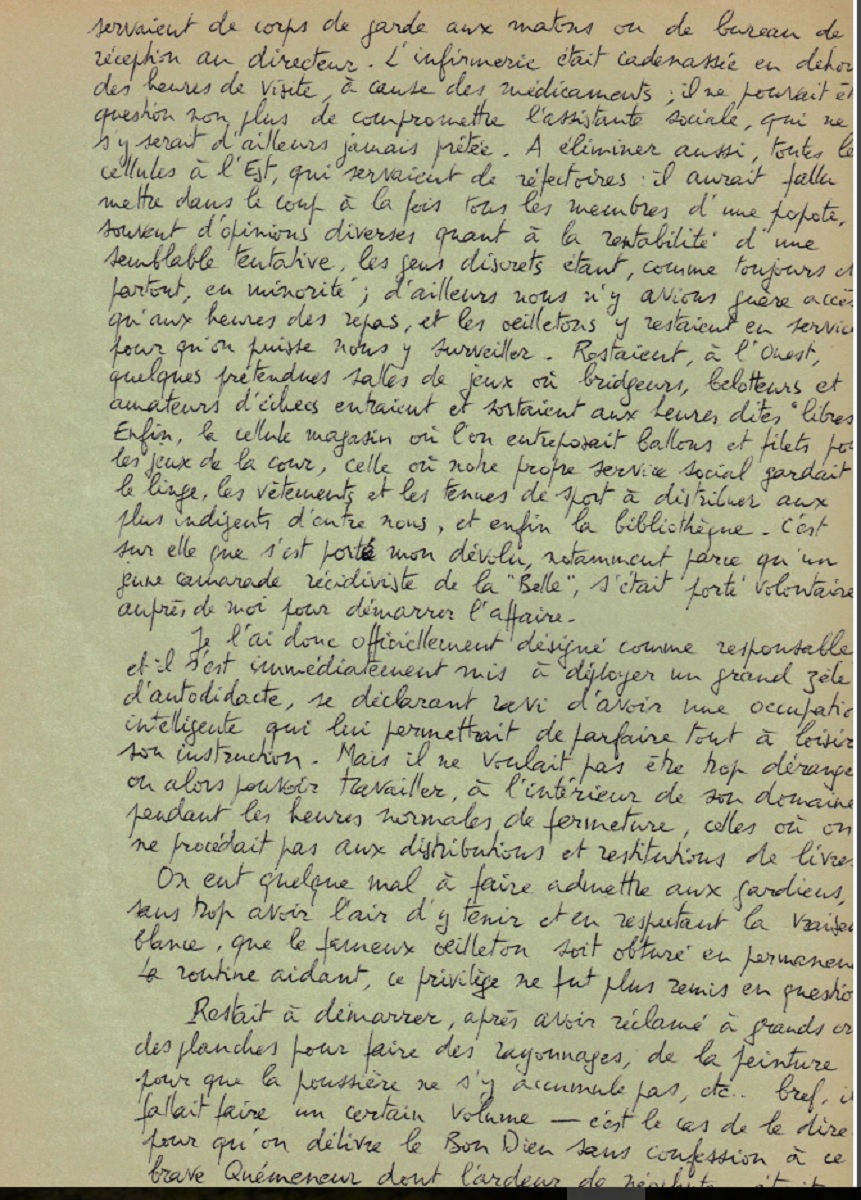 servaient de corps de garde aux matons ou de bureau de
réception au directeur. L'infirmerie était cadenassée en dehor
des heures de visite, à cause des médicaments ; il ne pouvait êt
question non plus de compromettre l'assistante sociale, qui ne
s'y serait d'ailleurs jamais prêtée. A éliminer aussi, toutes le
cellules à l'Est, qui servaient de réfectoires : il aurait fallu
mettre dans le coup à la fois tous les membres d'une popote,
souvent d'opinions diverses quant à la rentabilité d'une
semblable tentative, les gens discrets étant, comme toujours et
partout, en minorité ; d'ailleurs nous n'y avions guère accès
qu'aux heures des repas, et les oeilletons y restaient en servic
pour qu'on puisse nous y surveiller. Restaient, à l'Ouest,
quelques prétendues salles de jeux où bridgeurs, belotteurs et
amateurs d'échecs entraient et sortaient aux heures dites "libres
Enfin, la cellule magasin où l'on entreposait ballons et filets pou
les jeux de la cour, celle où notre propre service social gardait
le linge, les vêtements et les tenues de sport à distribuer aux
plus indigents d'entre nous, et enfin la bibliothèque - C'est
sur elle que s'est porté mon dévolu, notamment parce qu'un
jeune camarade récidiviste de la "Belle", s'était porté volontaire
auprès de moi pour démarrer l'affaire.
Je l'ai donc officiellement désigné comme responsable
et il s'est immédiatement mis à déployer un grand zèle
d'autodidacte, se déclarant ravi d'avoir une occupatio
intelligente qui lui permettrait de parfaire tout à loisir
son instruction. Mais il ne voulait pas être trop dérangé
ou alors pouvoir travailler, à l'intérieur de son domaine
pendant les heures normales de fermeture, celles où on
ne procédait pas aux distributions et restitutions de livres
On eut quelque mal à faire admettre aux gardiens,
sans trop avoir l'air d'y tenir et en respectant la vraisem
blance, que le fameux oeilleton soit obturé en permanen
La routine aidant, ce privilège ne fut plus remis en questio
Restait à démarrer, après avoir réclamé à grands cr
des planches pour faire des rayonnages, de la peinture
pour que la poussière ne s'y accumule pas, etc.. bref, il
fallait faire un certain volume — c'est le cas de le dire
pour qu'on délivre le Bon Dieu sans confession à ce
brave Quémeneur dont l'ardeur de néophyte était